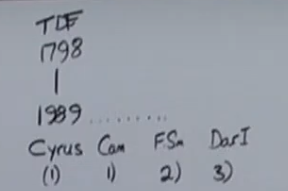 TOE
1798
|
1989........
Cyrus Cam F.Sm DarI
(1) 1) 2) 3)